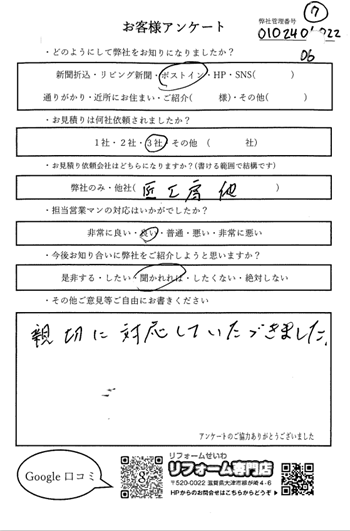 ⑦
お客様アンケート
弊社管理番号
06
・どのようにして弊社をお知りになりましたか?
新聞折込・リビング新聞・ポストイン・HP・SNS( )
通りがかり・近所にお住まい・ご紹介( 様)・その他( )
・お見積りは何社依頼されましたか?
1社・2社・3社 その他 ( 社)
・お見積り依頼会社はどちらになりますか?(書ける範囲で結構です)
弊社のみ・他社( 匠工房 他 )
・担当営業マンの対応はいかがでしたか?
非常に良い・良い・普通・悪い・非常に悪い
・今後お知り合いに弊社をご紹介しようと思いますか?
是非する・したい・聞かれれば・したくない・絶対しない
・その他ご意見等ご自由にお書きください
親切に対応していただきました。
アンケートのご協力ありがとうございました
Google 口コミ
リフォームせいわ
リフォーム専門店
〒520-0022 滋賀県大津市柳が崎4-6
HPからのお問合せはこちらからどうぞ▶